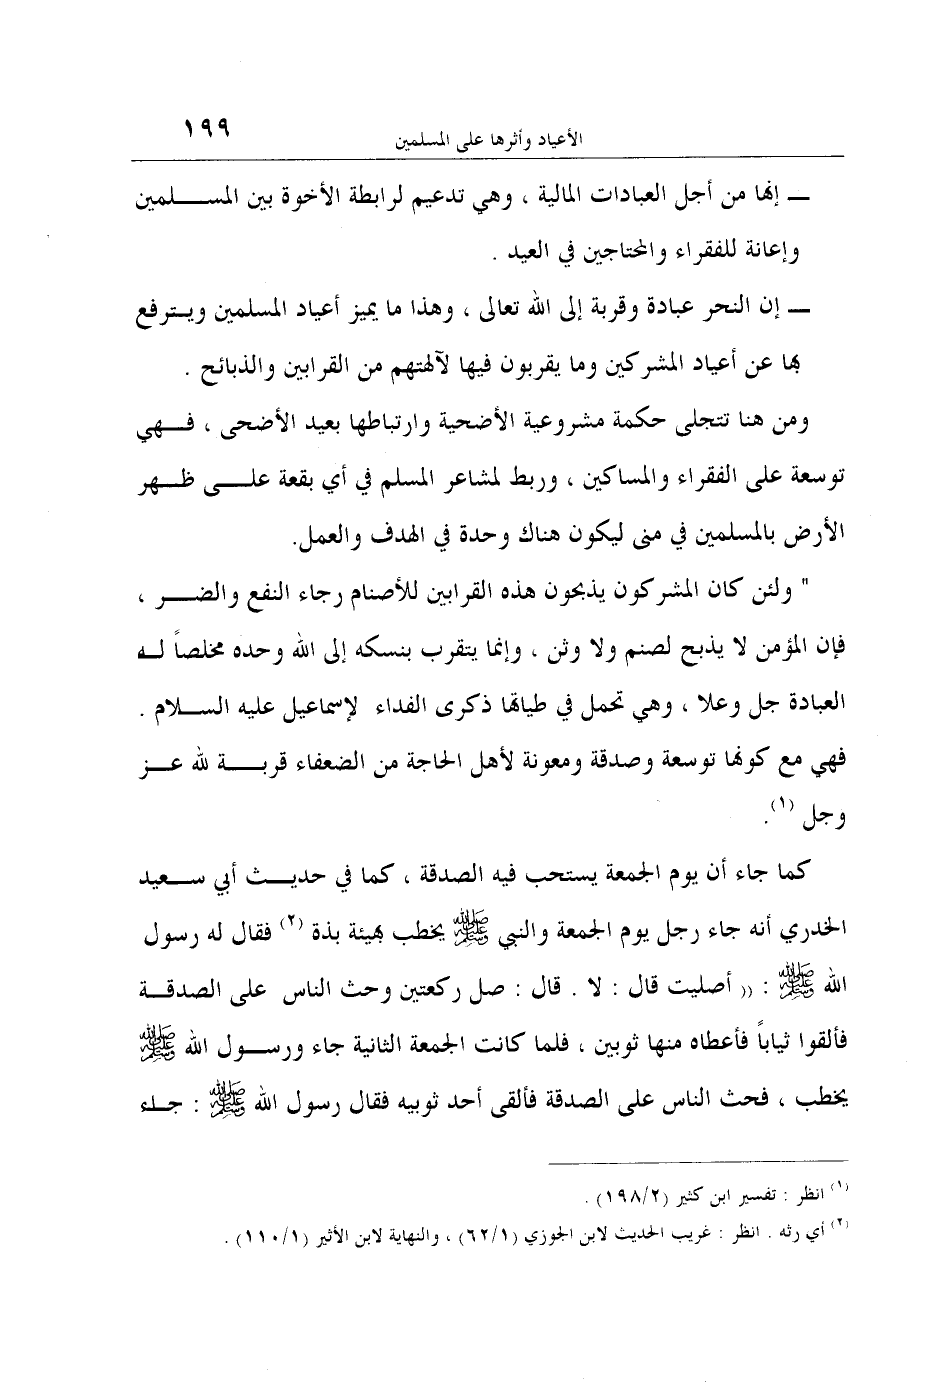 الأعياد وأثرها على المسلمين ١٩٩
ــ إنها من أجل العبادات المالية ، وهي تدعيم لرابطة الأخوة بين المســــلمين
وإعانة للفقراء والمحتاجين في العيد .
ــ إن النحر عبادة وقربة إلى الله تعالى ، وهذا ما يميز أعياد المسلمين ويــترفع
بها عن أعياد المشركين وما يقربون فيها لآلهتهم من القرابين والذبائح .
ومن هنا تتجلى حكمة مشروعية الأضحية وارتباطها بعيد الأضحى ، فــهي
توسعة على الفقراء والمساكين ، وربط لمشاعر المسلم في أي بقعة علــى ظــهر
الأرض بالمسلمين في منى ليكون هناك وحدة في الهدف والعمل.
" ولئن كان المشركون يذبحون هذه القرابين للأصنام رجاء النفع والضــر ،
فإن المؤمن لا يذبح لصنم ولا وثن ، وإنما يتقرب بنسكه إلى الله وحده مخلصاً لــه
العبادة جل وعلا ، وهي تحمل في طياتها ذكرى الفداء لإسماعيل عليه الســلام .
فهي مع كونها توسعة وصدقة ومعونة لأهل الحاجة من الضعفاء قربــة لله عــز
وجل (١).
كما جاء أن يوم الجمعة يستحب فيه الصدقة ، كما في حديــث أبي ســعيد
الخدري أنه جاء رجل يوم الجمعة والنبي ﷺ يخطب بهيئة بذة (٢) فقال له رسول
الله ﷺ : (( أصليت قال : لا . قال : صل ركعتين وحث الناس على الصدقــة
فألقوا ثياباً فأعطاه منها ثوبين ، فلما كانت الجمعة الثانية جاء ورســول الله ﷺ
يخطب ، فحث الناس على الصدقة فألقى أحد ثوبيه فقال رسول الله ﷺ : جــاء
(١) انظر : تفسير ابن كثير (١٩٨/٢) .
(٢) أي رثه . انظر : غريب الحديث لابن الجوزي (٦٢/١) ، والنهاية لابن الأثير (١١٠/١) .